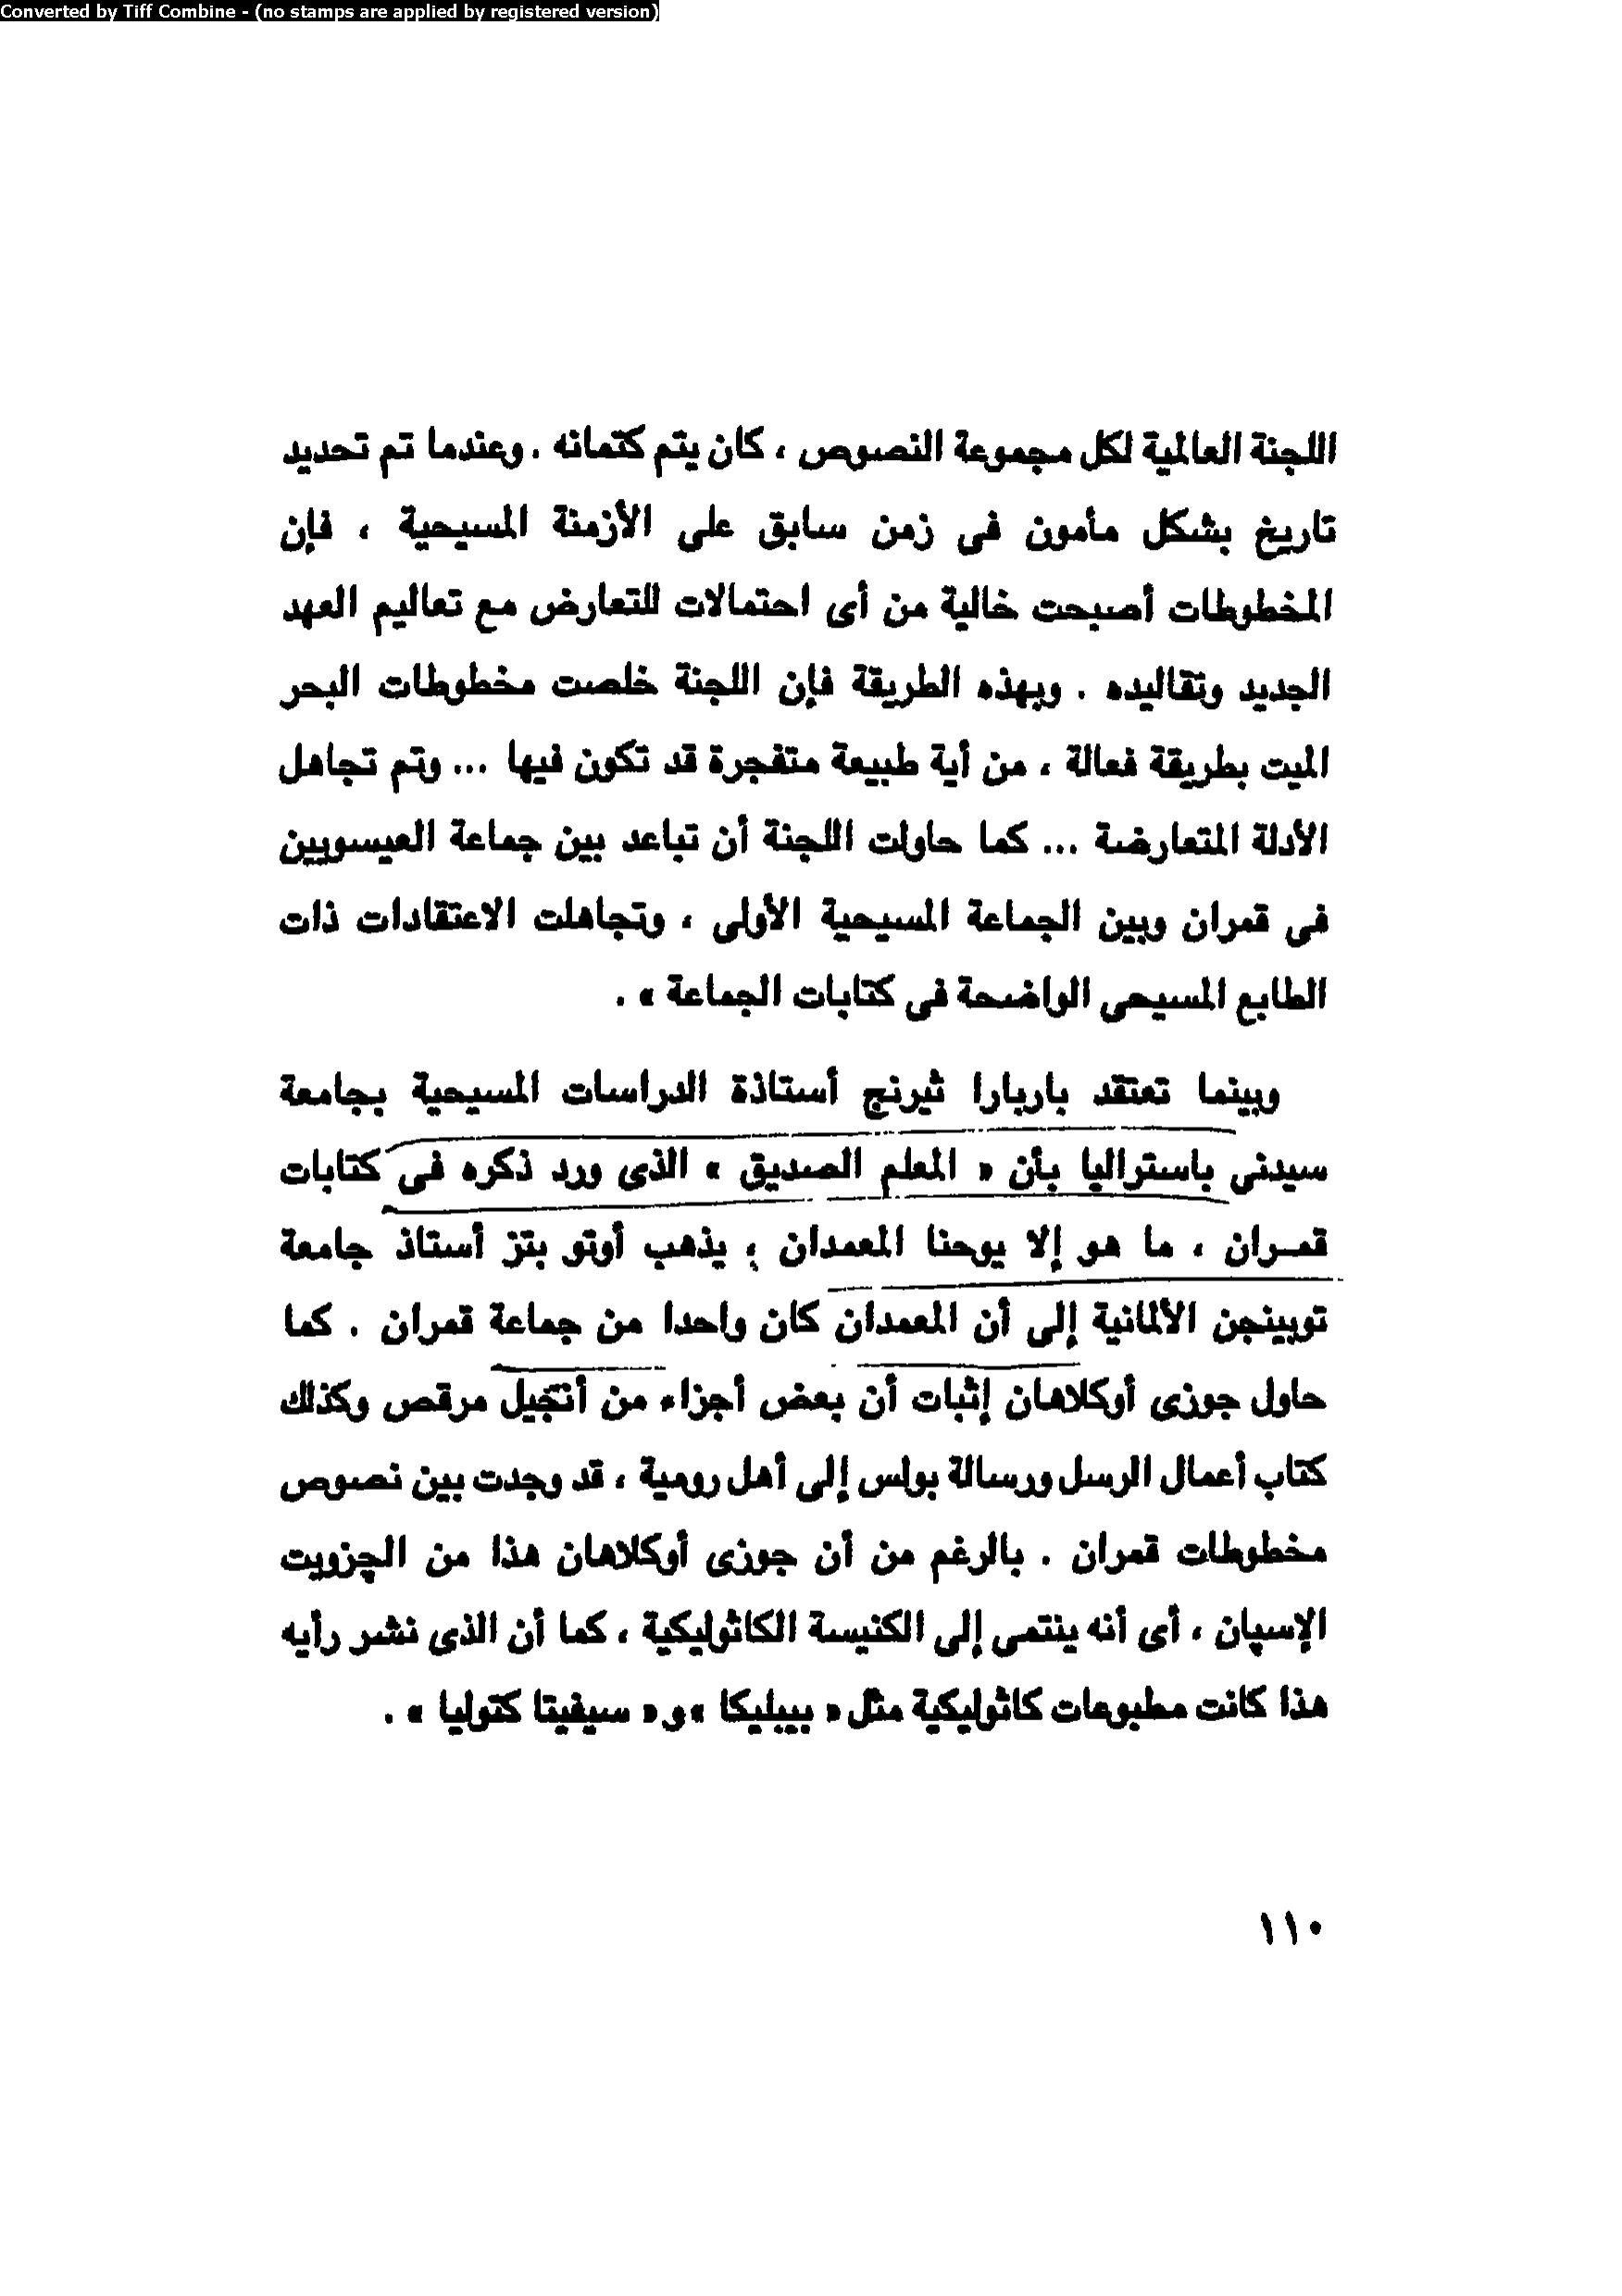 Converted by Tiff Combine - (no stamps are applied by registered version)
اللجنة العالمية لكل مجموعة النصوص ، كان يتم كتمانه . وعندما تم تحديد
تاريخ بشكل مأمون فى زمن سابق على الأزمنة المسيحية ، فإن
المخطوطات أصبحت خالية من أى احتمالات للتعارض مع تعاليم العهد
الجديد وتقاليده . وبهذه الطريقة فإن اللجنة خلصت مخطوطات البحر
الميت بطريقة فعالة ، من أية طبيعة متفجرة قد تكون فيها ... وتم تجاهل
الأدلة المتعارضة ... كما حاولت اللجنة أن تباعد بين جماعة العيسويين
فى قمران وبين الجماعة المسيحية الأولى ، وتجاهلت الاعتقادات ذات
الطابع المسيحى الواضحة فى كتابات الجماعة » .
وبينما تعتقد باربارا ثيرنج أستاذة الدراسات المسيحية بجامعة
سيدنى باستراليا بأن « المعلم الصديق » الذى ورد ذكره فى كتابات
قمـران ، ما هو إلا يوحنا المعمدان ؛ يذهب أوتو بتز أستاذ جامعة
توبينجن الألمانية إلى أن المعمدان كان واحدا من جماعة قمران . كما
حاول جوزى أوكلاهان إثبات أن بعض أجزاء من أنجيل مرقص وكذلك
كتاب أعمال الرسل ورسالة بولس إلى أهل رومية ، قد وجدت بين نصوص
مخطوطات قمران . بالرغم من أن جوزى أوكلاهان هذا من الچزويت
الإسپان ، أى أنه ينتمى إلى الكنيسة الكاثوليكية ، كما أن الذى نشر رأيه
هذا كانت مطبوعات كاثوليكية مثل « بيبليكا » و « سيفيتا كتوليا » .
١١٠